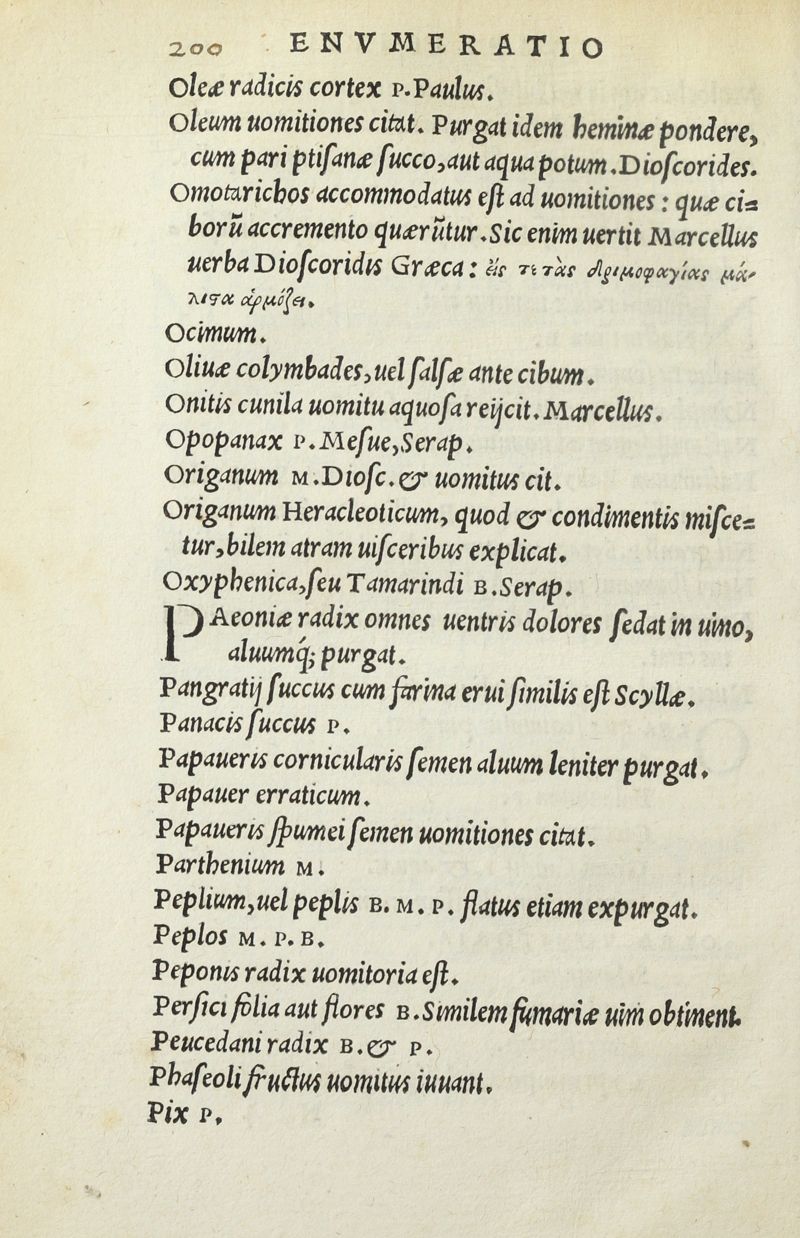 200 ENVMERATIO
Oleæ radicis cortex P. Paulus.
Oleum uomitiones citat. Purgat idem heminæ pondere,
cum pari ptiſanæ ſucco, aut aqua potum. Dioſcorides.
Omotarichos accommodatus eſt ad uomitiones: quæ ci=
borũ accremento quærũtur. Sic enim uertit Marcellus
uerba Dioſcoridis Græca: εἴς τε τὰς δριμοφαγίας μά-
λιστα ἁρμόζει.
Ocimum.
Oliuæ colymbades, uel ſalſæ ante cibum.
Onitis cunila uomitu aquoſa reijcit. Marcellus.
Opopanax P. Meſue, Serap.
Origanum M. Dioſc. & uomitus cit.
Origanum Heracleoticum, quod & condimentis miſce=
tur, bilem atram uiſceribus explicat.
Oxyphenica, ſeu Tamarindi B. Serap.
PAeoniæ radix omnes uentris dolores ſedat in uino,
aluumq́; purgat.
Pangratij ſuccus cum farina erui ſimilis eſt Scyllæ.
Panacis ſuccus P.
Papaueris cornicularis ſemen aluum leniter purgat.
Papauer erraticum.
Papaueris ſpumei ſemen uomitiones citat.
Parthenium M.
Peplium, uel peplis B. M. P. flatus etiam expurgat.
Peplos M. P. B.
Peponis radix uomitoria eſt.
Perſici folia aut flores B. Similem fumariæ uim obtinent.
Peucedani radix B. & P.
Phaſeoli fructus uomitus iuuant.
Pix P.